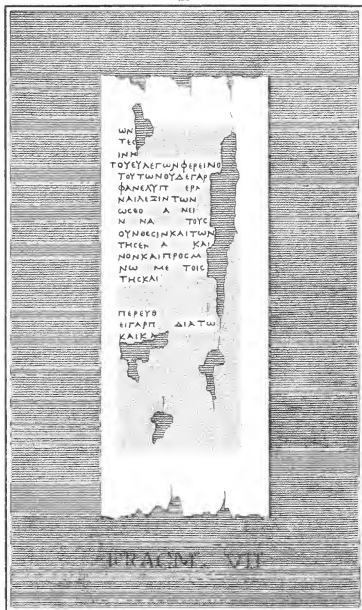 ΩΝ
ΤΕϹ
ΙΝΝ
ΤΟΥΕΥΛΕΓΩΝΦΕΡΕΙΝΟ
ΤΟΥΤΩΝΟΥΔΕΓΑΡ
ΦΑΝΕΛΥΠ ΕΡΑ
ΝΑΙΛΕΞΙΝΤΩΝ
ΩϹΘΟ Α ΝΕΙ
Ν ΝΑ ΤΟΥϹ
ΟΥΝΘΕϹΙΝΚΑΙΤΩΝ
ΤΗϹΕΝ Α ΚΑΙ
ΝΟΝΚΑΙΠΡΟϹΜ
ΝΩ ΜΕ ΤΟΙϹ
ΤΗϹΚΑΙ
ΠΕΡΕΥΘ
ΕΙΓΑΡΠ ΔΙΑΤΩ
ΚΑΙΚΑ
FRAGM. VII